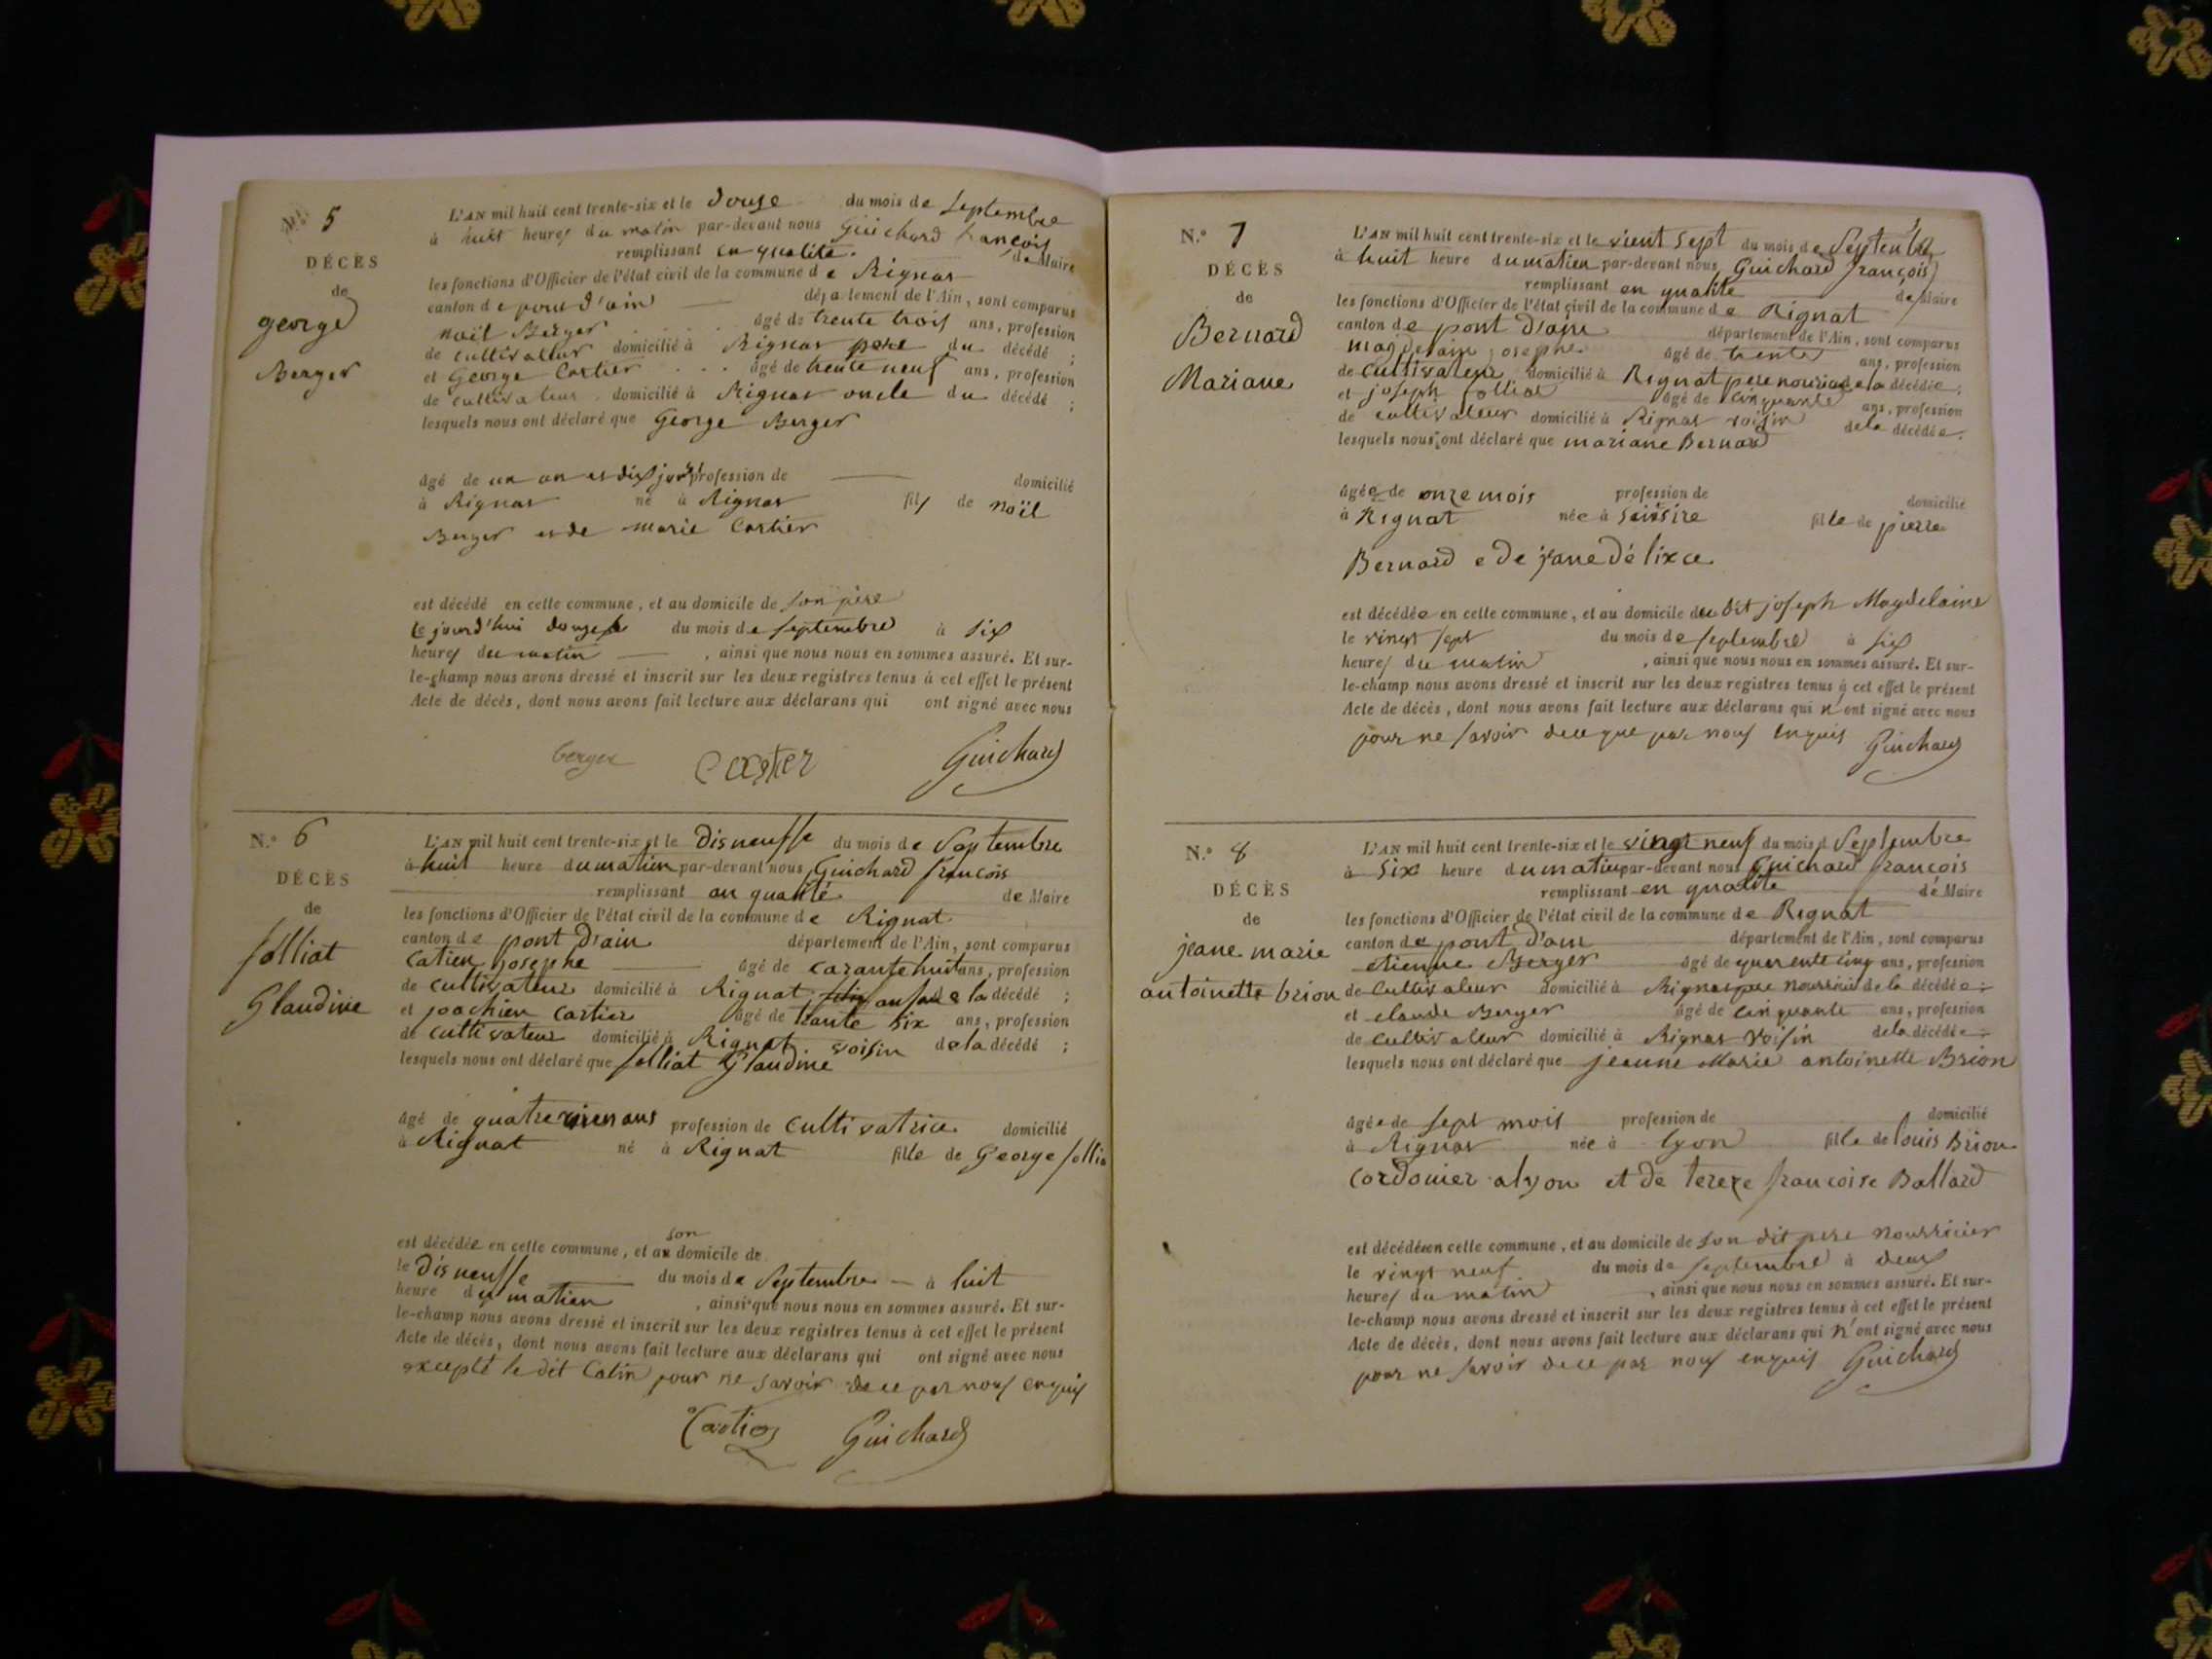 N.º 5
DÉCÈS
de
george
Berger
L'AN mil huit cent trente-six et le douze du mois de Septembre
à huit heures du matin par-devant nous Guichard françois
remplissant en qualité de Maire
les fonctions d'Officier de l'état civil de la commune de Rignat
canton de pont d'ain département de l'Ain, sont comparus
noël Berger âgé de trente trois ans, profession
de cultivateur domicilié à Rignat pere du décédé ;
et George Cartier âgé de trente neuf ans, profession
de cultivateur domicilié à Rignat oncle du décédé ;
lesquels nous ont déclaré que George Berger
âgé de un an et dix jours profession de domicilié
à Rignat né à Rignat fils de noël
Berger et de marie Cartier
est décédé en cette commune, et au domicile de son père
le jourd'hui douze du mois de septembre à six
heures du matin , ainsi que nous nous en sommes assuré. Et sur-
le-champ nous avons dressé et inscrit sur les deux registres tenus à cet effet le présent
Acte de décès, dont nous avons fait lecture aux déclarans qui ont signé avec nous
berger Cartier Guichard
N.º 6
DÉCÈS
de
folliat
Glaudine
L'AN mil huit cent trente-six et le disneuffe du mois de Septembre
à huit heure dumatien par-devant nous Guichard françois
remplissant an qualité de Maire
les fonctions d'Officier de l'état civil de la commune de Rignat
canton de pont D'ain département de l'Ain, sont comparus
Catien josephe âgé de carantehuit ans, profession
de cultivateur domicilié à Rignat de la décédé ;
et joachien Cartier âgé de trante six ans, profession
de cultivateur domicilié à Rignat voisin dela décédé ;
lesquels nous ont déclaré que folliat Glaudine
âgé de quatre ans profession de cultivatrice domicilié
à Rignat né à Rignat fille de George follia
est décédée en cette commune, et au son domicile de
le disneuffe du mois de Septembre à huit
heure du matien , ainsi que nous nous en sommes assuré. Et sur-
le-champ nous avons dressé et inscrit sur les deux registres tenus à cet effet le présent
Acte de décès, dont nous avons fait lecture aux déclarans qui ont signé avec nous
excepté le dit Catin pour ne savoir de ce par nous enquis
Cartier Guichard
N.º 7
DÉCÈS
de
Bernard
Mariane
L'AN mil huit cent trente-six et le vient sept du mois de Septenbre
à huit heure dumatien par-devant nous Guichard françois
remplissant en qualité de Maire
les fonctions d'Officier de l'état civil de la commune de Rignat
canton de pont d'ain département de l'Ain, sont comparus
magdelain josephe âgé de trente ans, profession
de cultivateur domicilié à Rignat pere de la décédée ;
et joseph folliat âgé de cinquante ans, profession
de cultivateur domicilié à Rignat voisin dela décédée.
lesquels nous ont déclaré que mariane Bernard
âgée de onze mois profession de domicilié
à Rignat née à fille de pierre
Bernard e de jane délixce
est décédée en cette commune, et au domicile du dit joseph Magdelaine
le vingt sept du mois de septembre à six
heures du matin , ainsi que nous nous en sommes assuré. Et sur-
le-champ nous avons dressé et inscrit sur les deux registres tenus à cet effet le présent
Acte de décès, dont nous avons fait lecture aux déclarans qui n'ont signé avec nous
pour ne savoir dece que par nous enquis Guichard
N.º 8
DÉCÈS
de
jeane marie
antoinette brion
L'AN mil huit cent trente-six et le vingt neuf du mois d Septembre
à six heure dumatin par-devant nous Guichard françois
remplissant en qualité de Maire
les fonctions d'Officier de l'état civil de la commune de Rignat
canton de pont d'ain département de l'Ain, sont comparus
etienne Berger âgé de quarente cinq ans, profession
de cultivateur domicilié à Rignat pere nourricier de la décédée ;
et claude Berger âgé de cinquante ans, profession
de cultivateur domicilié à Rignat voisin dela décédée ;
lesquels nous ont déclaré que jeanne Marie antoinette Brion
âgée de sept mois profession de domicilié
à Rignat née à lyon fille de louis Brion
Cordonier alyon et de tereze francoise Ballard
est décédée en cette commune, et au domicile de son dit pere nourricier
le vingt neuf du mois de septembre à deux
heures du matin , ainsi que nous nous en sommes assuré. Et sur-
le-champ nous avons dressé et inscrit sur les deux registres tenus à cet effet le présent
Acte de décès, dont nous avons fait lecture aux déclarans qui n'ont signé avec nous
pour ne savoir dece par nous enquis Guichard